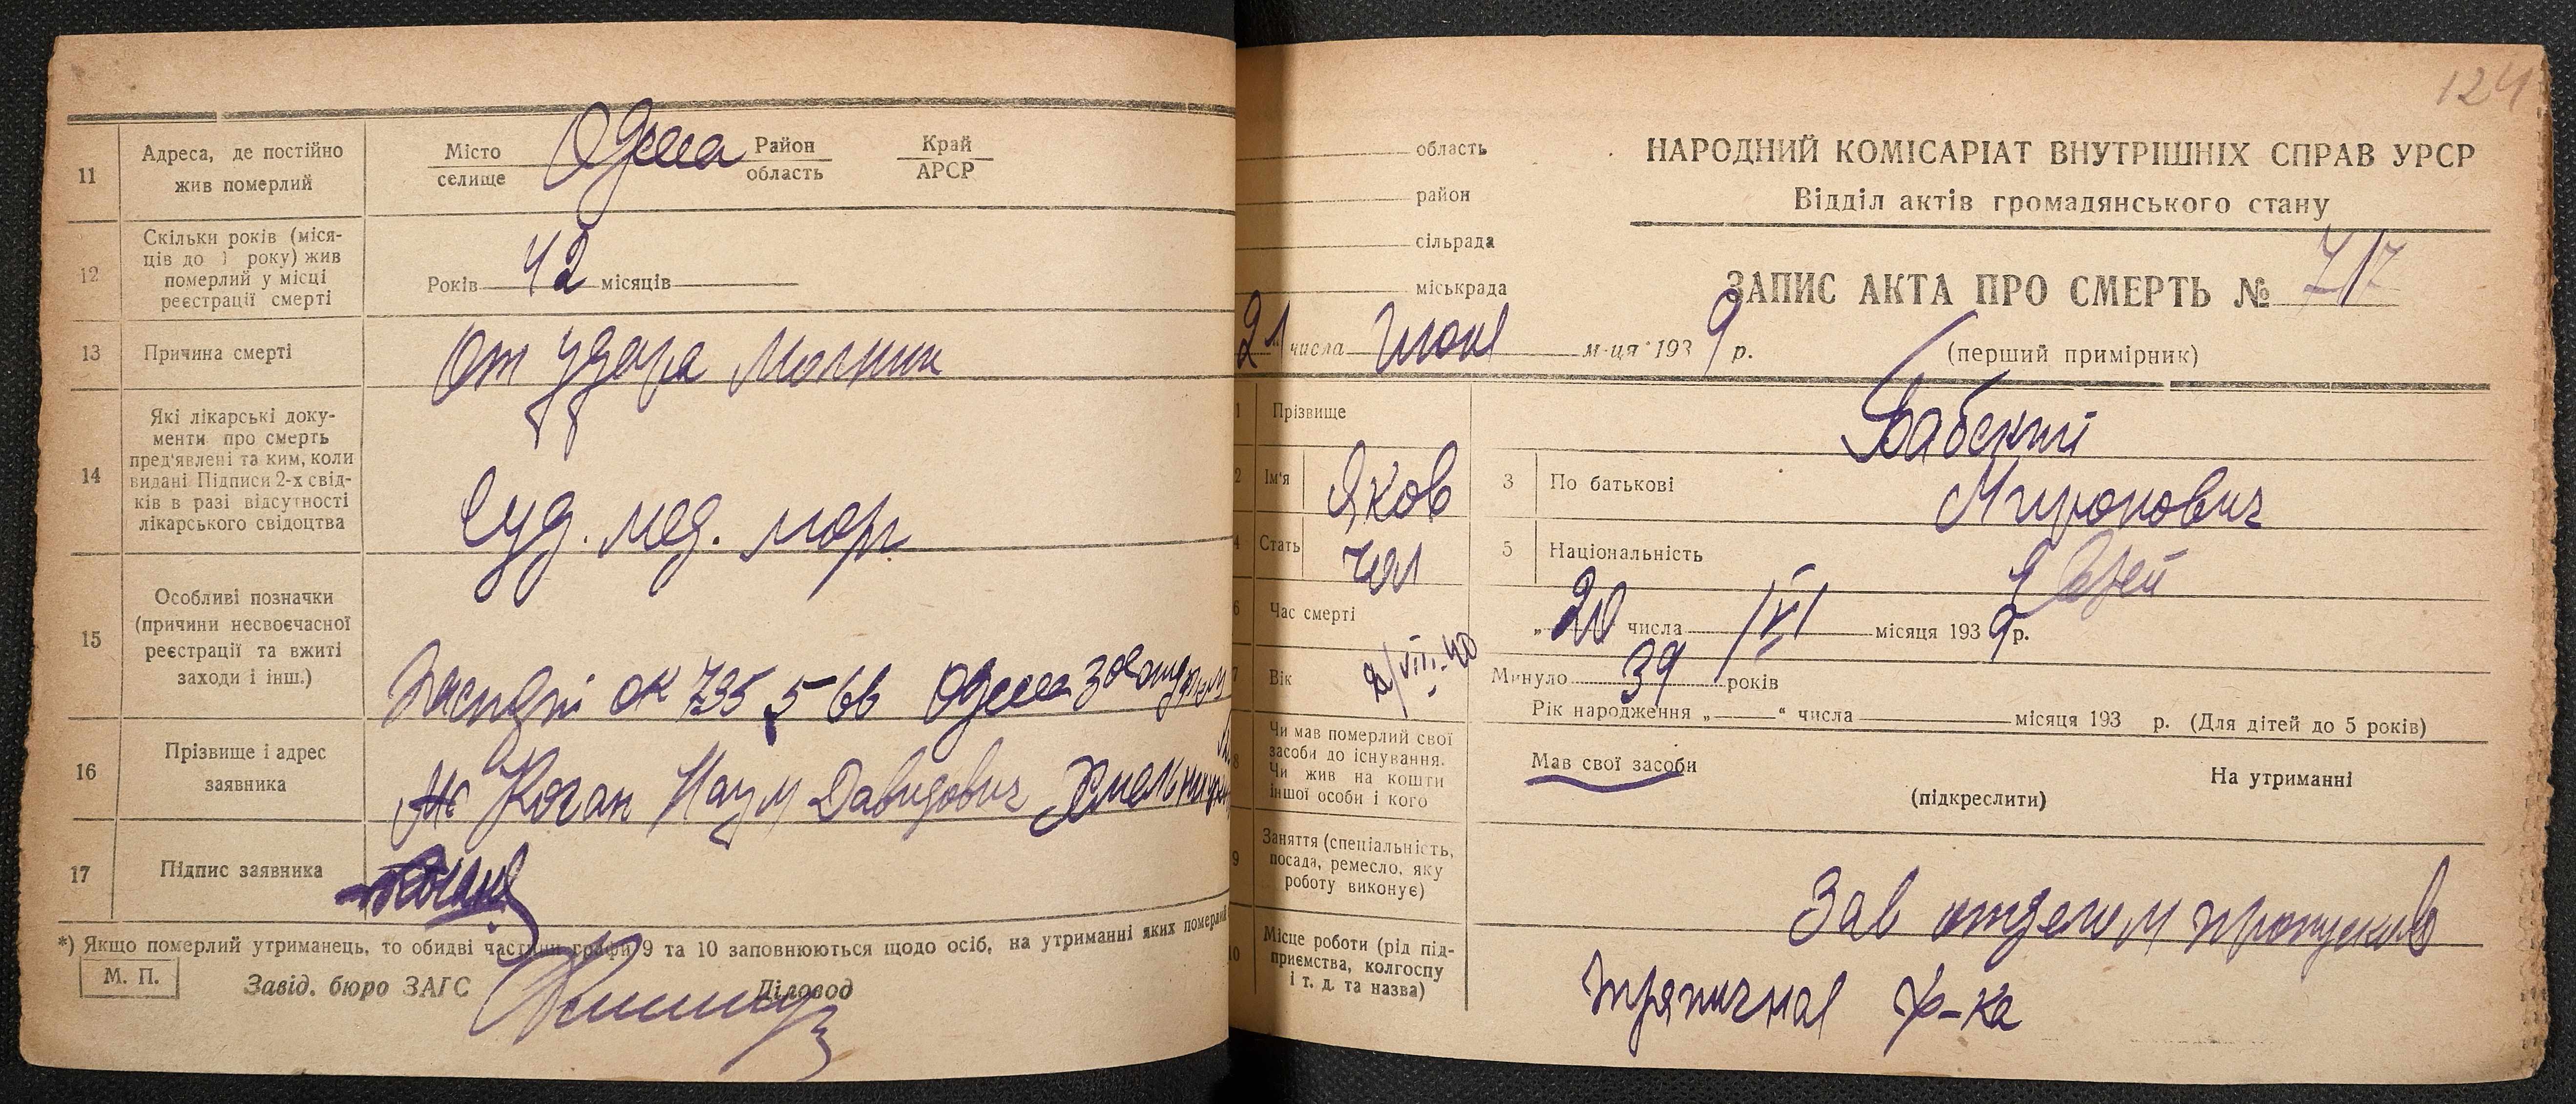 11
Адреса, де постійно
жив померлий
Місто
селище
Одесса
Район
область
Край
АРСР
12
Скільки років (міся-
ців до 1 року) жив
померлий у місці
реєстрації смерті
Років 42 місяців
13
Причина смерті
От удара молнии
14
Які лікарські доку-
менти про смерть
пред'явлені та ким, коли
видані Підписи 2-х свід-
ків в разі відсутності
лікарського свідоцтва
Суд. мед. морг
15
Особливі позначки
(причини несвоєчасної
реєстрації та вжиті
заходи і інш.)
16
Прізвище і адрес
заявника
Паспорт ОК 735566 Одесса
Коган Наум Давидович
17
Підпис заявника
Коган
*) Якщо померлий утриманець, то обидві частини графи 9 та 10 заповнюються щодо осіб, на утриманні яких померлий
М. П.
Завід. бюро ЗАГС
Діловод
124
область
район
сільрада
міськрада
НАРОДНИЙ КОМІСАРІАТ ВНУТРІШНІХ СПРАВ УРСР
Відділ актів громадянського стану
ЗАПИС АКТА ПРО СМЕРТЬ № 717
21 числа июня м-ця 1939 р.
(перший примірник)
1 Прізвище
Бабский
2 Ім'я Яков
3 По батькові Миронович
4 Стать чол
5 Національність Еврей
6 Час смерті
„ 20 числа VI місяця 1939 р.
7 Вік
2/VII-40
Минуло 39 років
Рік народження „ “ числа місяця 193 р. (Для дітей до 5 років)
8
Чи мав померлий свої
засоби до існування.
Чи жив на кошти
іншої особи і кого
Мав свої засоби
(підкреслити)
На утриманні
9
Заняття (спеціальність,
посада, ремесло, яку
роботу виконує)
Зав отделом пропусков
10
Місце роботи (рід під-
приємства, колгоспу
і т. д. та назва)
тряпичная ф-ка